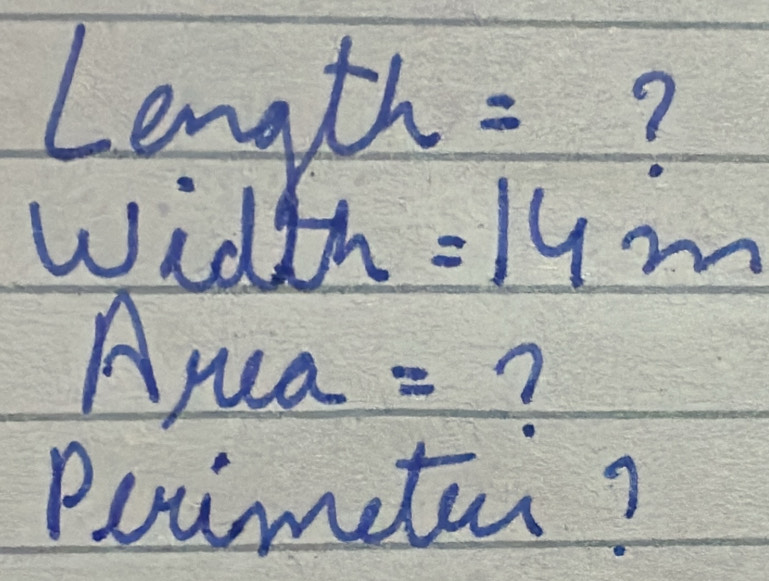 Length = ?
Width = 14 m
Area = ?
Perimeter ?